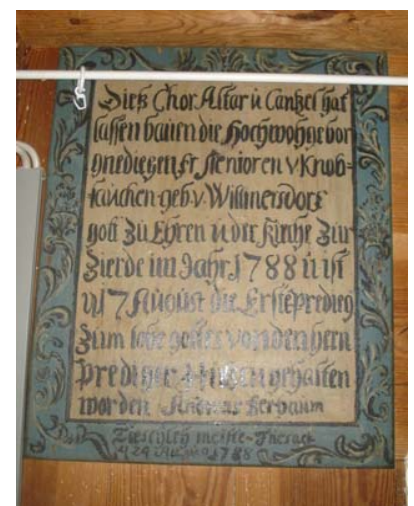 Dieß Chor Altar ü Cantzel hat
laßen bauen die Hochwohlge bor
gnediegen fr Senioren V Knob=
lauchen geb. v. Willmersdorf
gott Zü Ehren ü der Kirche Zur
Zierde im Jahr 1788 ü ist
17 August die Erste predieg
Zum lobe gottes von den hern
Prediger gehalten
worden Andreas Kerbaum
Tieschler meister
24 1788